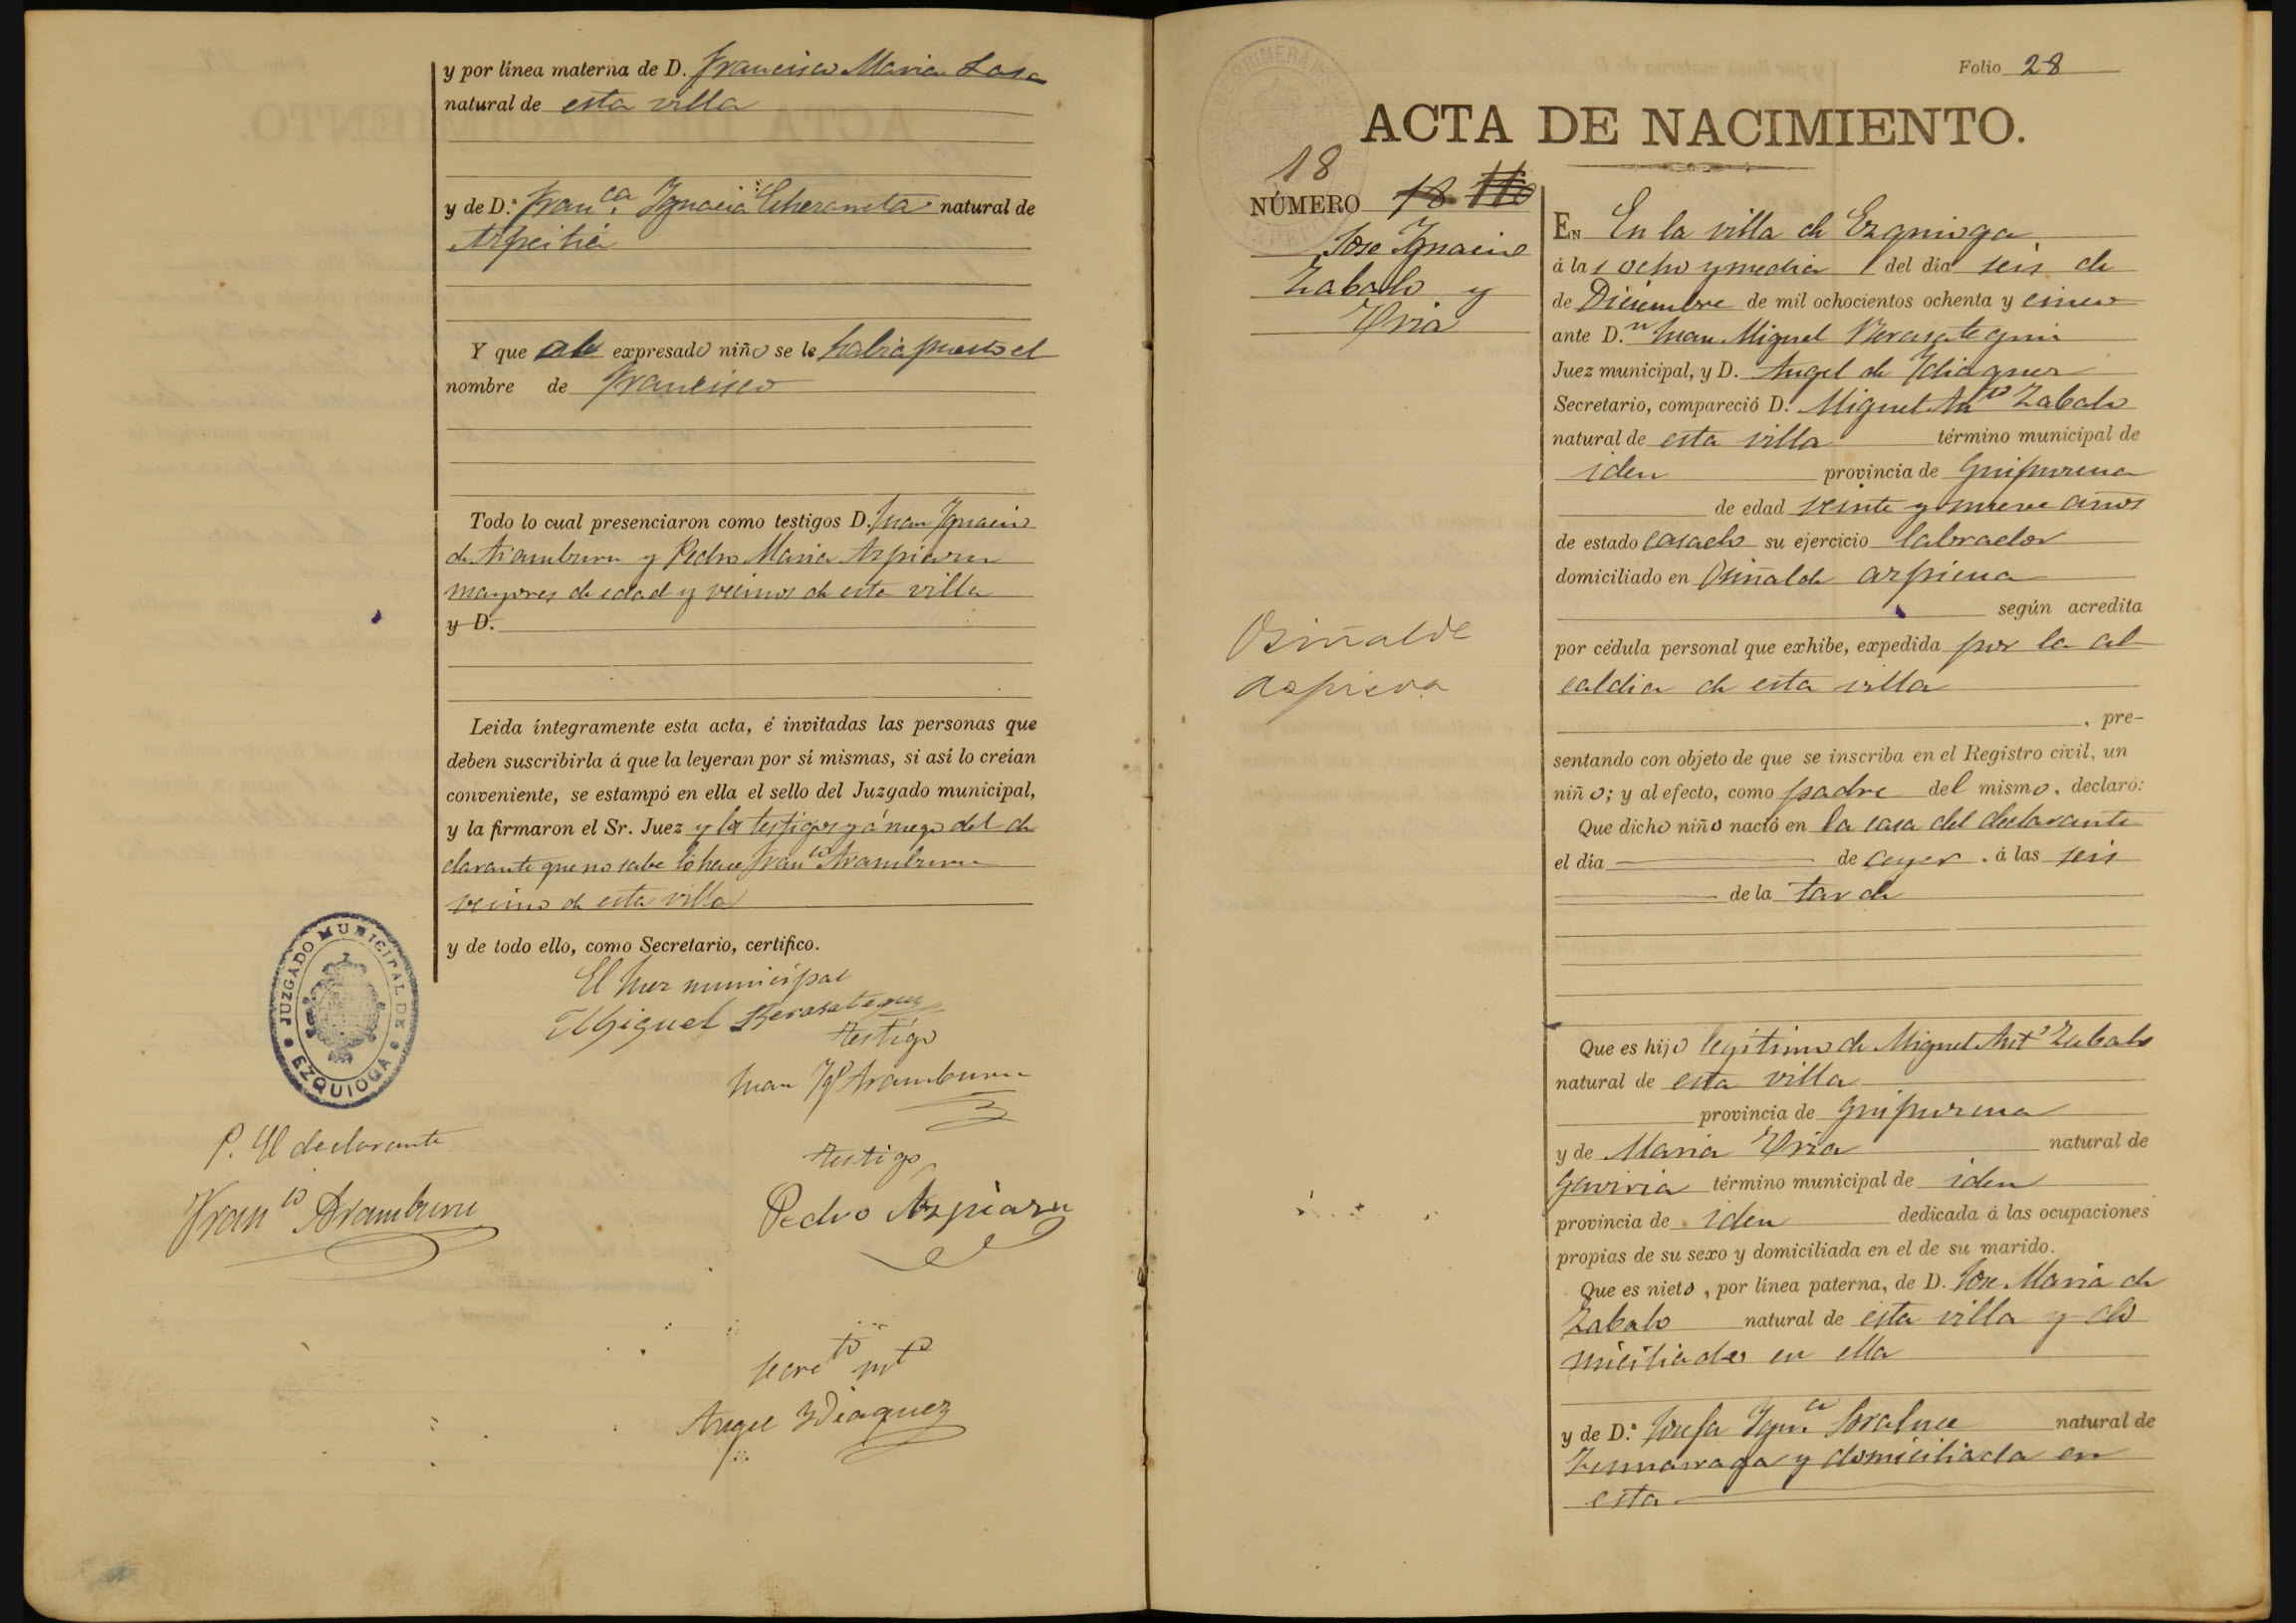 y por línea materna de D. Francisco Maria Lasa
natural de esta villa
y de D.ª Fran.ca Ignacia Echezarreta natural de
Azpeitia
Y que al expresado niño se le habia puesto el
nombre de Francisco
Todo lo cual presenciaron como testigos D. Juan Ignacio
de Aramburu y Pedro Maria Azpiazu
mayores de edad y vecinos de esta villa
y D.
Leida íntegramente esta acta, é invitadas las personas que
deben suscribirla á que la leyeran por sí mismas, si así lo creían
conveniente, se estampó en ella el sello del Juzgado municipal,
y la firmaron el Sr. Juez y los testigos y á ruego del de
clarante que no sabe lo hace Fran.co Aramburu
vecino de esta villa
y de todo ello, como Secretario, certifico.
JUZGADO MUNICIPAL DE EZQUIOGA
El Juez municipal
Miguel Berasategui
testigo
Juan Ig.o Aramburu
P. El declarante
testigo
Franco Aramburu
Pedro Azpiazu
Secreto into
Angel Ydiaquez
Folio 28
ACTA DE NACIMIENTO.
18
NÚMERO 18 110
Jose Ignacio
Zabalo y
Oria
EN En la villa de Ezquioga
á las ocho y media del día seis de
de Diciembre de mil ochocientos ochenta y cinco
ante D.n Juan Miguel Berasategui
Juez municipal, y D. Angel de Ydiaquez
Secretario, compareció D. Miguel Anto Zabalo
natural de esta villa término municipal de
iden provincia de Guipuzcua
de edad veinte y nueve años
de estado casado su ejercicio labrador
domiciliado en Osiñalde azpicua
según acredita
Osiñalde
azpicua
por cédula personal que exhibe, expedida por la al
caldia de esta villa
, pre-
sentando con objeto de que se inscriba en el Registro civil, un
niño; y al efecto, como padre del mismo, declaró:
Que dicho niño nació en la casa del declarante
el día de ayer. á las seis
de la tarde
Que es hijo legitimo de Miguel Anto Zabalo
natural de esta villa
provincia de Guipuzcua
y de Maria Oria natural de
Gaviria término municipal de iden
provincia de iden dedicada á las ocupaciones
propias de su sexo y domiciliada en el de su marido.
Que es nieto, por línea paterna, de D. Jose Maria de
Zabalo natural de esta villa y do
miciliado en ella
y de D.ª Josefa Ign.a Soraluce natural de
Zumarraga y domiciliada en
esta